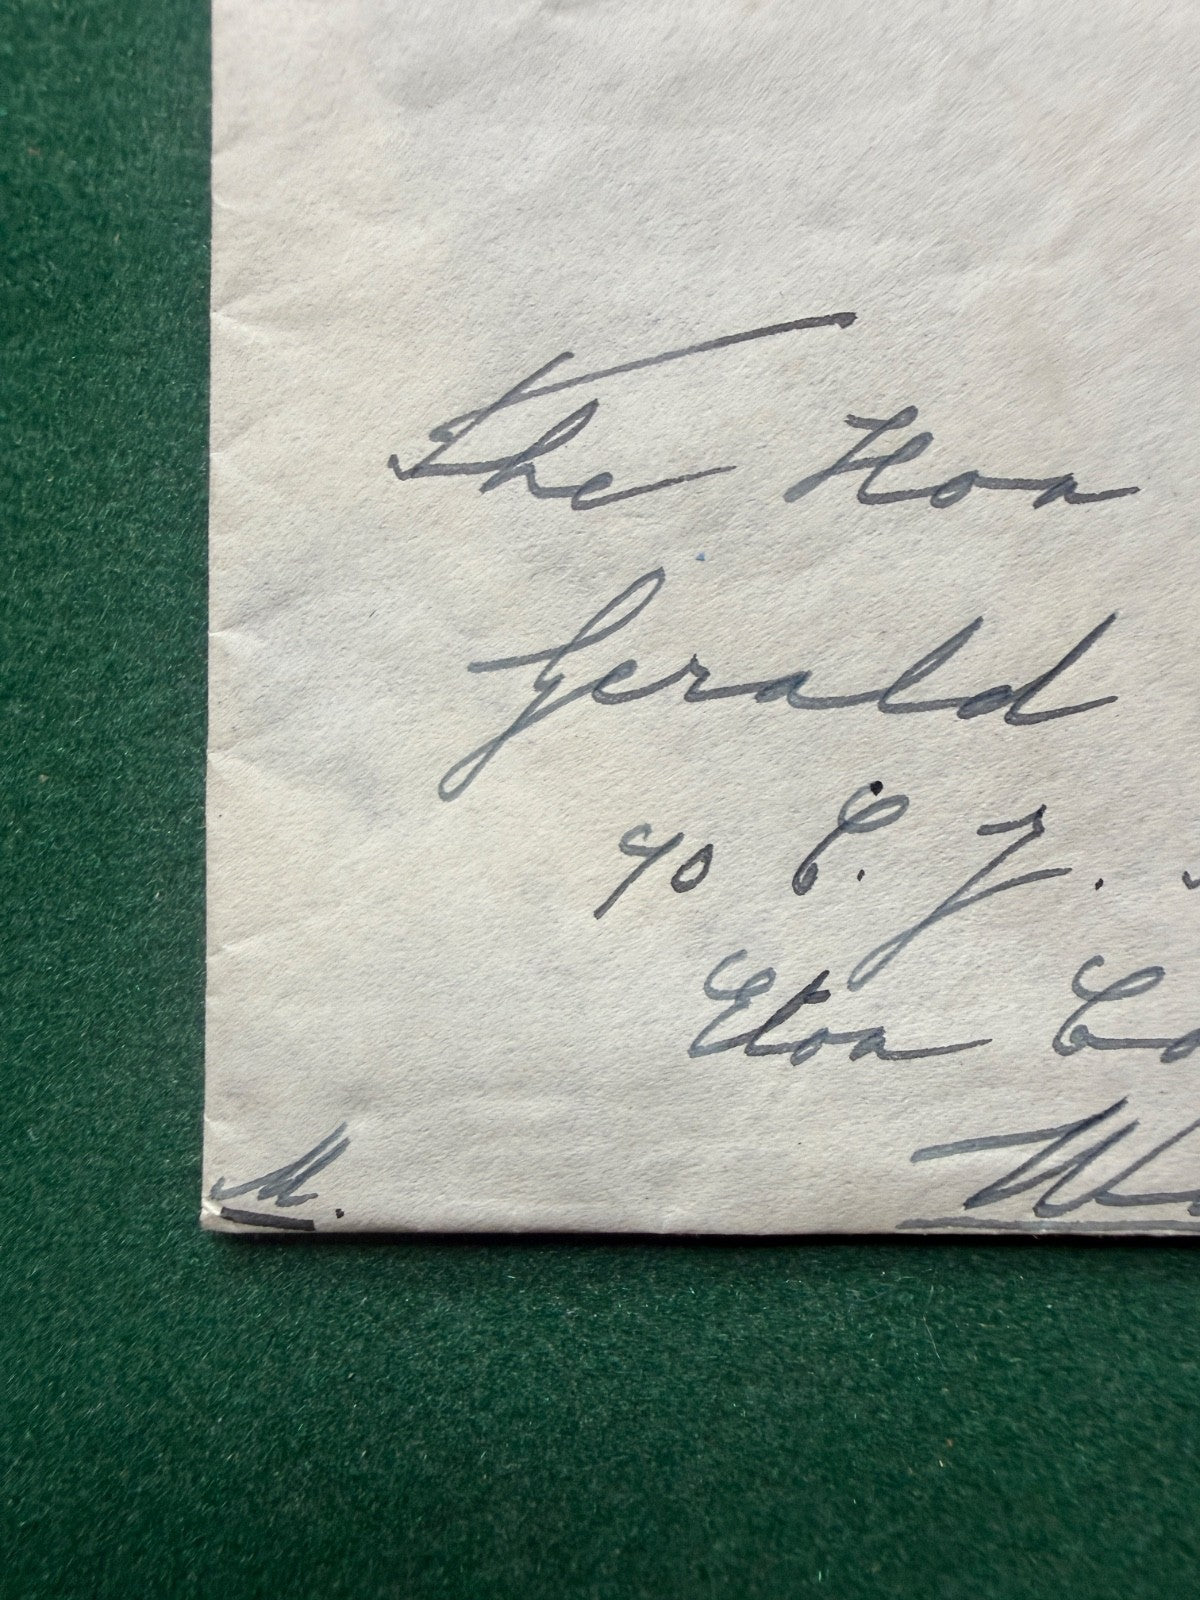 The Hon
Gerald
c/o C. J.
Eton Co
W
M.